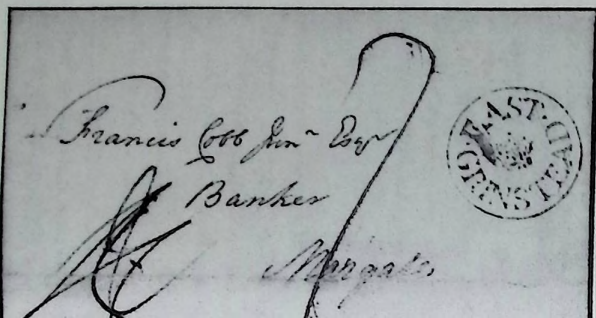 Francis Cobb Junr Esqr
Banker
Margate
EAST
GRINSTEAD